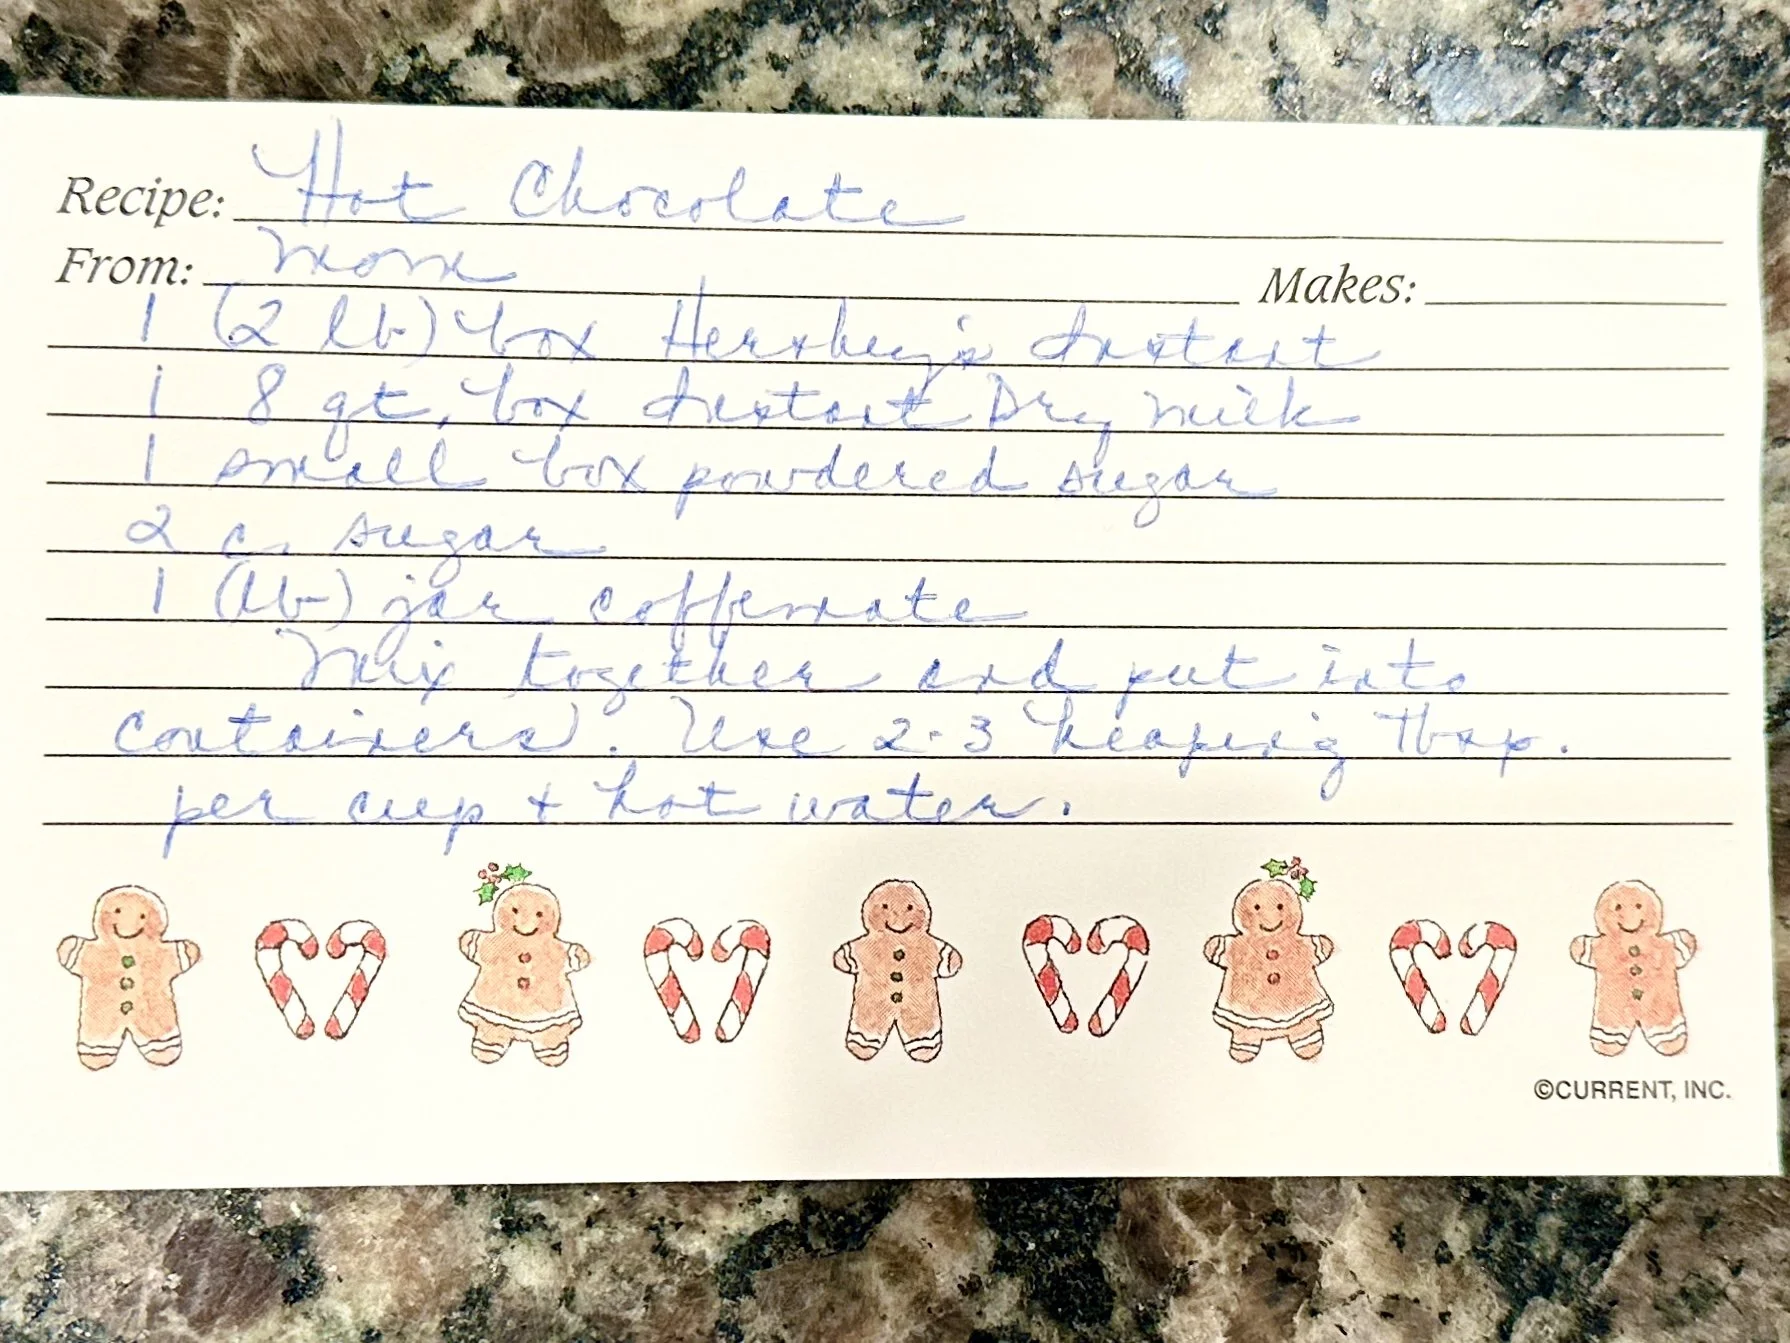 Recipe: Hot Chocolate
From: Mom Makes:
1 (2 lb) box Hershey's Instant
1 8 qt. box Instant Dry Milk
1 small box powdered sugar
2 c. sugar
1 (lb) jar coffemate
Mix together and put into
containers). Use 2-3 heaping Tbsp.
per cup + hot water.
©CURRENT, INC.